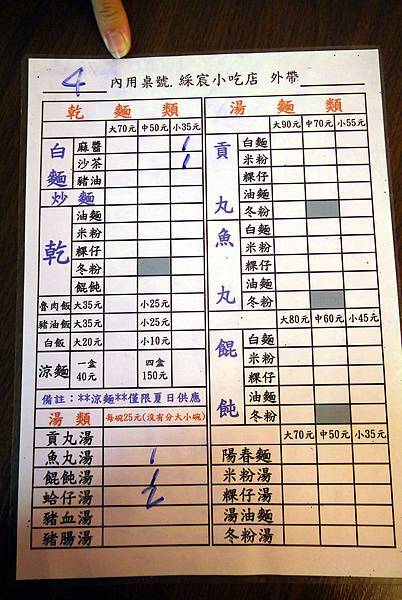 4 內用桌號. 綵宸小吃店 外帶
乾麵類
大70元 中50元 小35元
白麵
麻醬 1
沙茶 1
豬油
炒麵
乾
油麵
米粉
粿仔
冬粉
餛飩
魯肉飯 大35元 小25元
豬油飯 大35元 小25元
白飯 大20元 小10元
涼麵 一盒40元 四盒150元
備註：**涼麵**僅限夏日供應
湯類 每碗25元(沒有分大小碗)
貢丸湯
魚丸湯 1
餛飩湯 1
蛤仔湯 2
豬血湯
豬腸湯
湯麵類
大90元 中70元 小55元
貢丸魚丸
白麵
米粉
粿仔
油麵
冬粉
白麵
米粉
粿仔
油麵
冬粉
大80元 中60元 小45元
餛飩
白麵
米粉
粿仔
油麵
冬粉
大70元 中50元 小35元
陽春麵
米粉湯
粿仔湯
湯油麵
冬粉湯